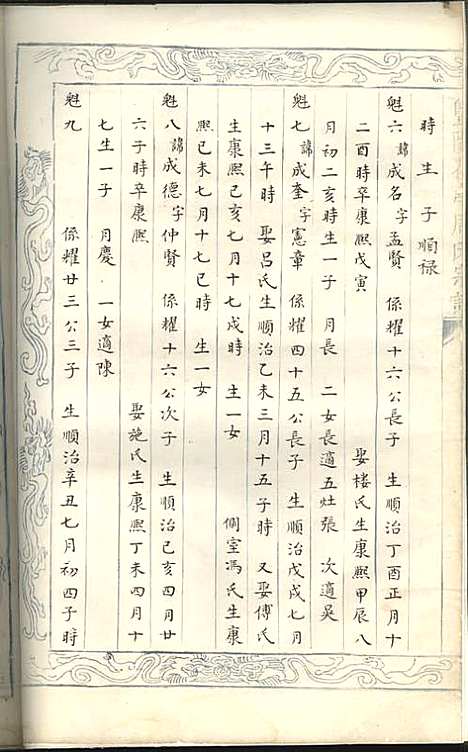 時生 子順祿
魁六諱成名字孟賢 係耀十六公長子 生順治丁酉正月十
二酉時卒康熙戊寅 娶楼氏生康熙甲辰八
月初二亥時生一子 月長 二女長適五灶張 次適吳
魁七諱成奎字憲章 係耀四十五公長子 生順治戊戌七月
十三午時 娶呂氏生順治乙未三月十五子時 又娶傅氏
生康熙己亥七月十七戌時 生一女 側室馮氏生康
熙己未七月十七巳時 生一女
魁八諱成德字仲賢 係耀十六公次子 生順治己亥四月廿
六子時卒康熙 娶施氏生康熙丁未四月十
七生一子 月慶 一女適陳
魁九 係耀廿三公三子 生順治辛丑七月初四子時